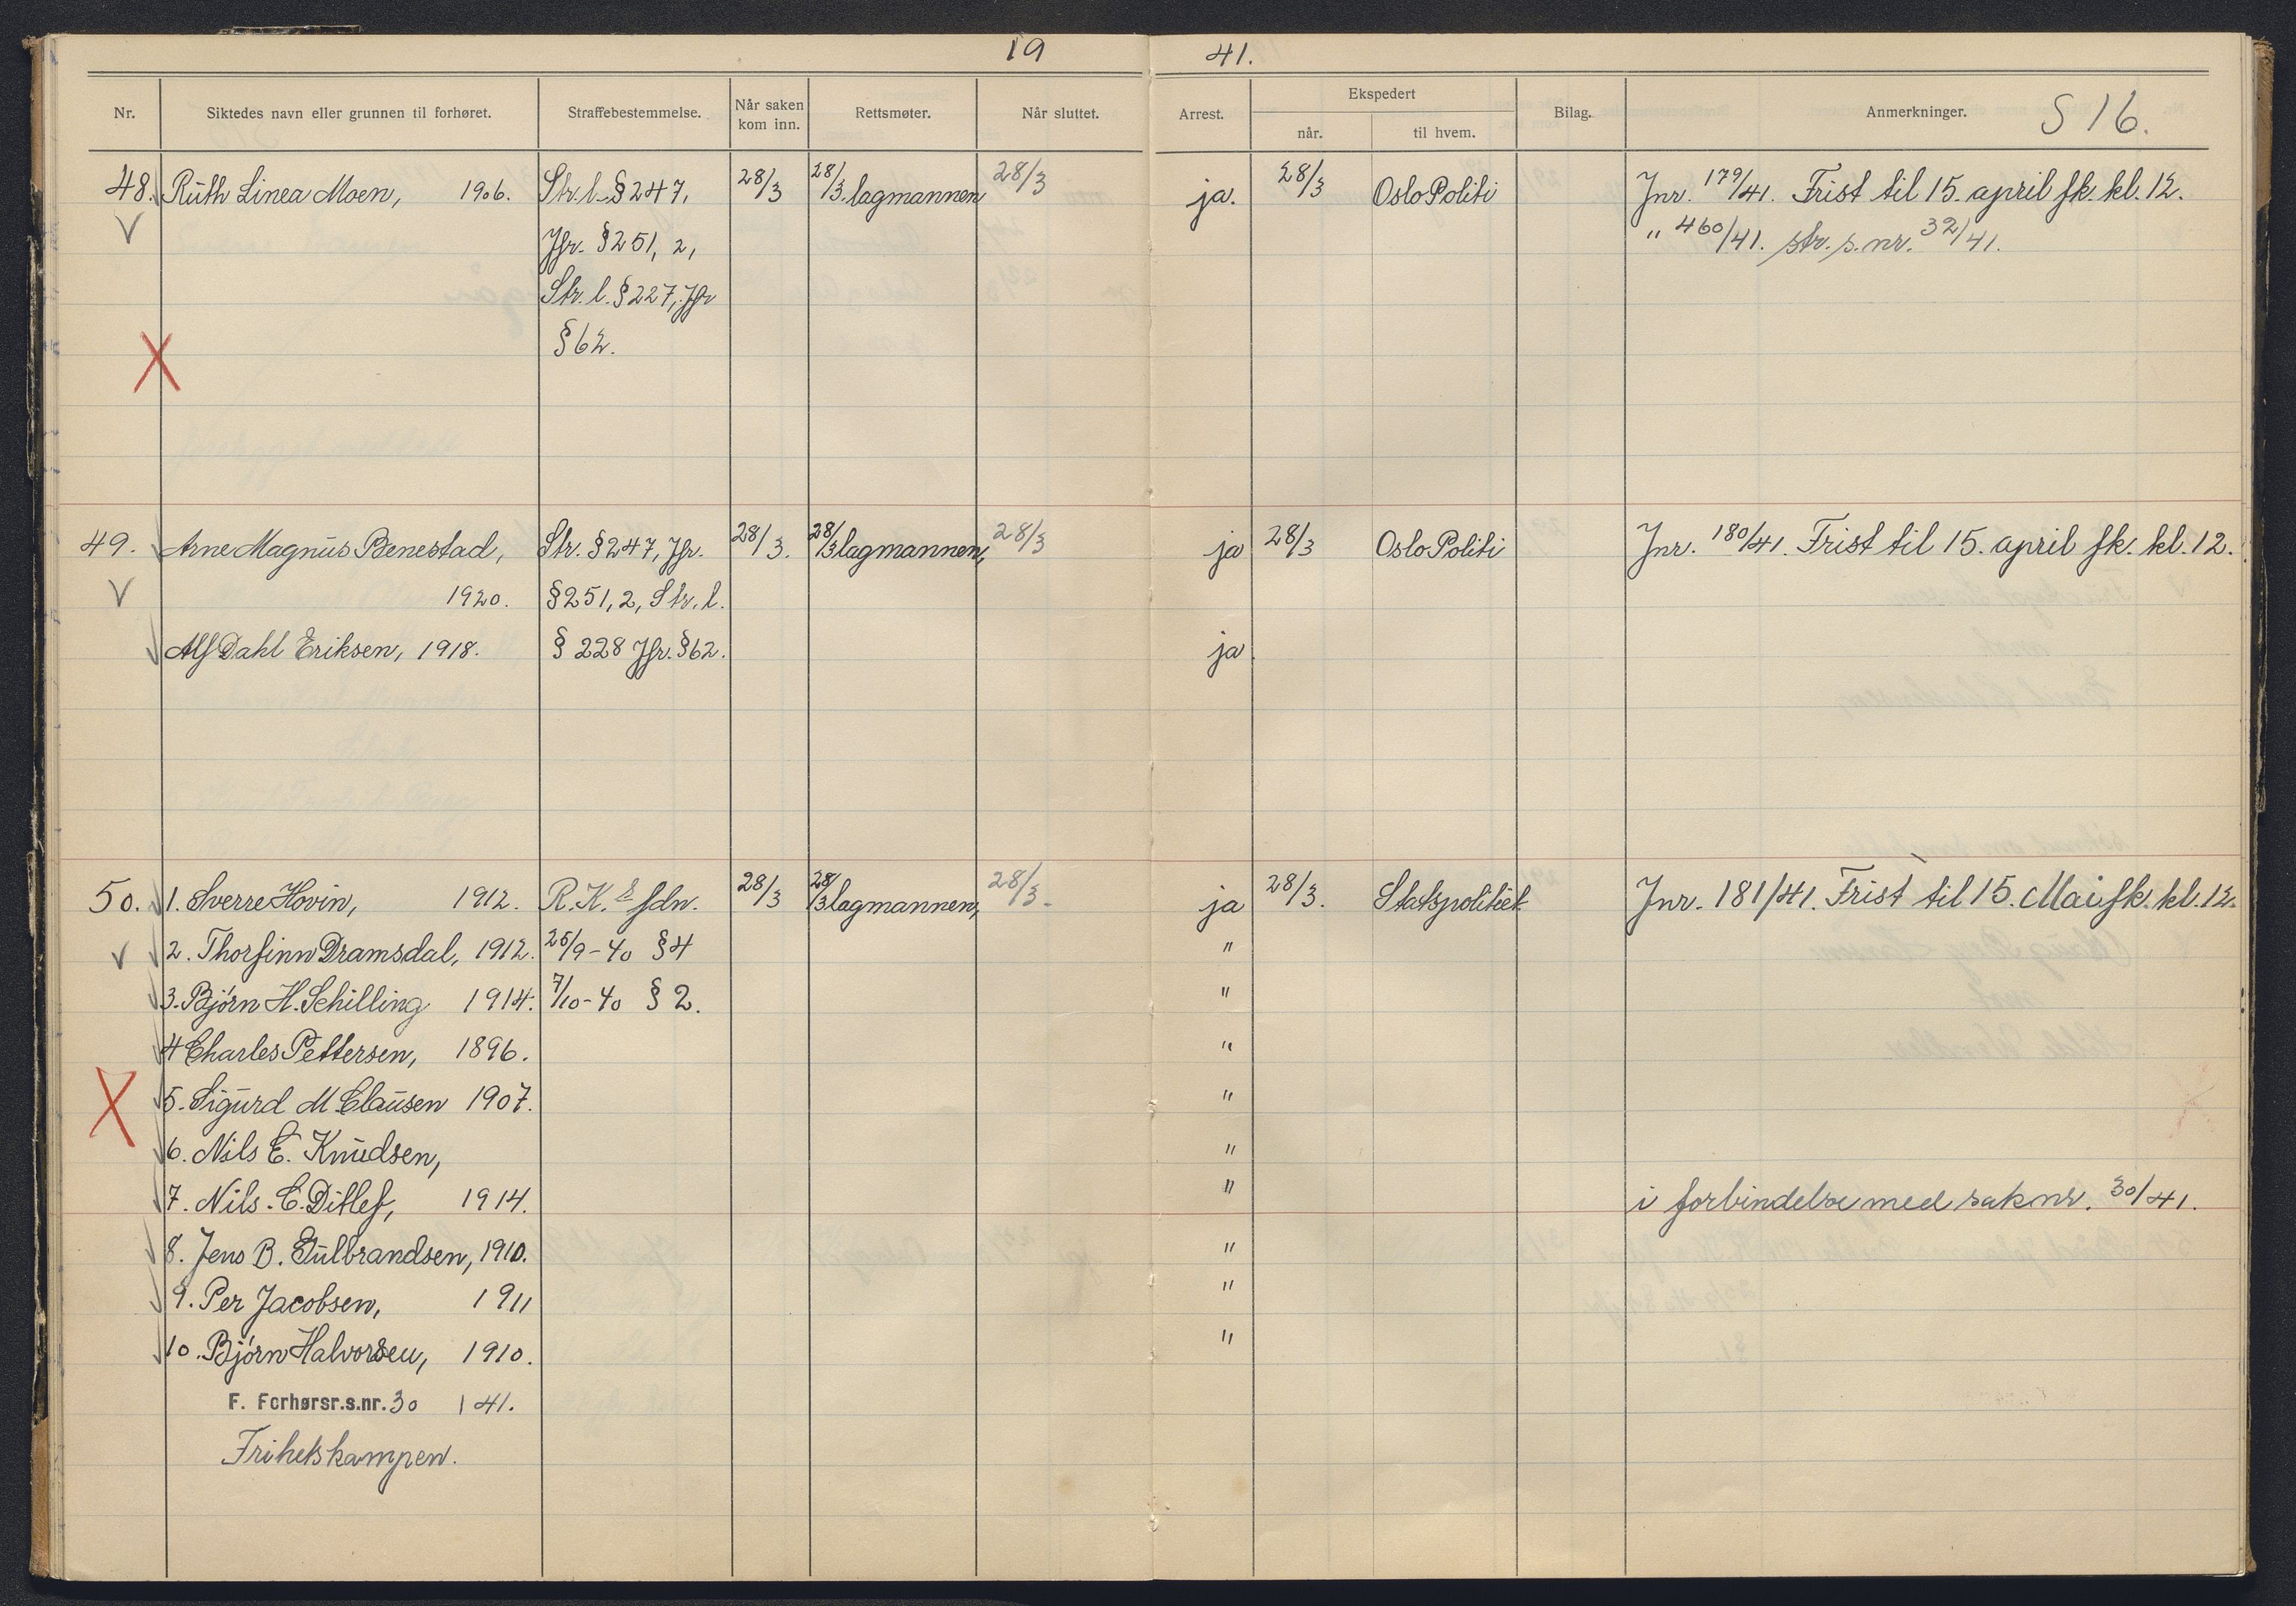 19 41.
Nr. Siktedes navn eller grunnen til forhøret. Straffebestemmelse. Når saken kom inn. Rettsmøter. Når sluttet. Arrest. Ekspedert når. til hvem. Bilag. Anmerkninger. S 16.
48. Ruth Linea Moen, 1906. Str.l. § 247, 28/3 28/3. lagmannen 28/3 ja. 28/3 Oslo Politi Jnr. 179/41. Frist til 15. april fk. kl. 12.
Jfr. § 251, 2, " 460/41. str. s. nr. 32/41.
Str. l. § 227, Jfr
§ 62.
49. Arne Magnus Benestad, Str. § 247, Jfr. 28/3. 28/3 lagmannen, 28/3 ja 28/3 Oslo Politi Jnr. 180/41. Frist til 15. april fk. kl. 12.
1920. § 251, 2, Str. l.
Alf Dahl Eriksen, 1918. § 228 Jfr. § 62. ja
50. 1. Sverre Hovin, 1912. R.K.s fdn. 28/3 28/3 lagmannen, 28/3. ja 28/3. Statspolitiet Jnr. 181/41. Frist til 15. Mai fk. kl. 12.
2. Thorfinn Dramsdal, 1912. 25/9-40 § 4 "
3. Bjørn H. Schilling 1914. 7/10-40 § 2. "
4 Charles Pettersen, 1896. "
5. Sigurd M Clausen 1907. "
6. Nils E. Knudsen, "
7. Nils. C. Ditlef, 1914. " i forbindelse med saknr. 30/41.
8. Jens B. Gulbrandsen, 1910. "
9. Per Jacobsen, 1911 "
10. Bjørn Halvorsen, 1910. "
F. Forhørsr.s.nr. 30 / 41.
Frihetskampen.